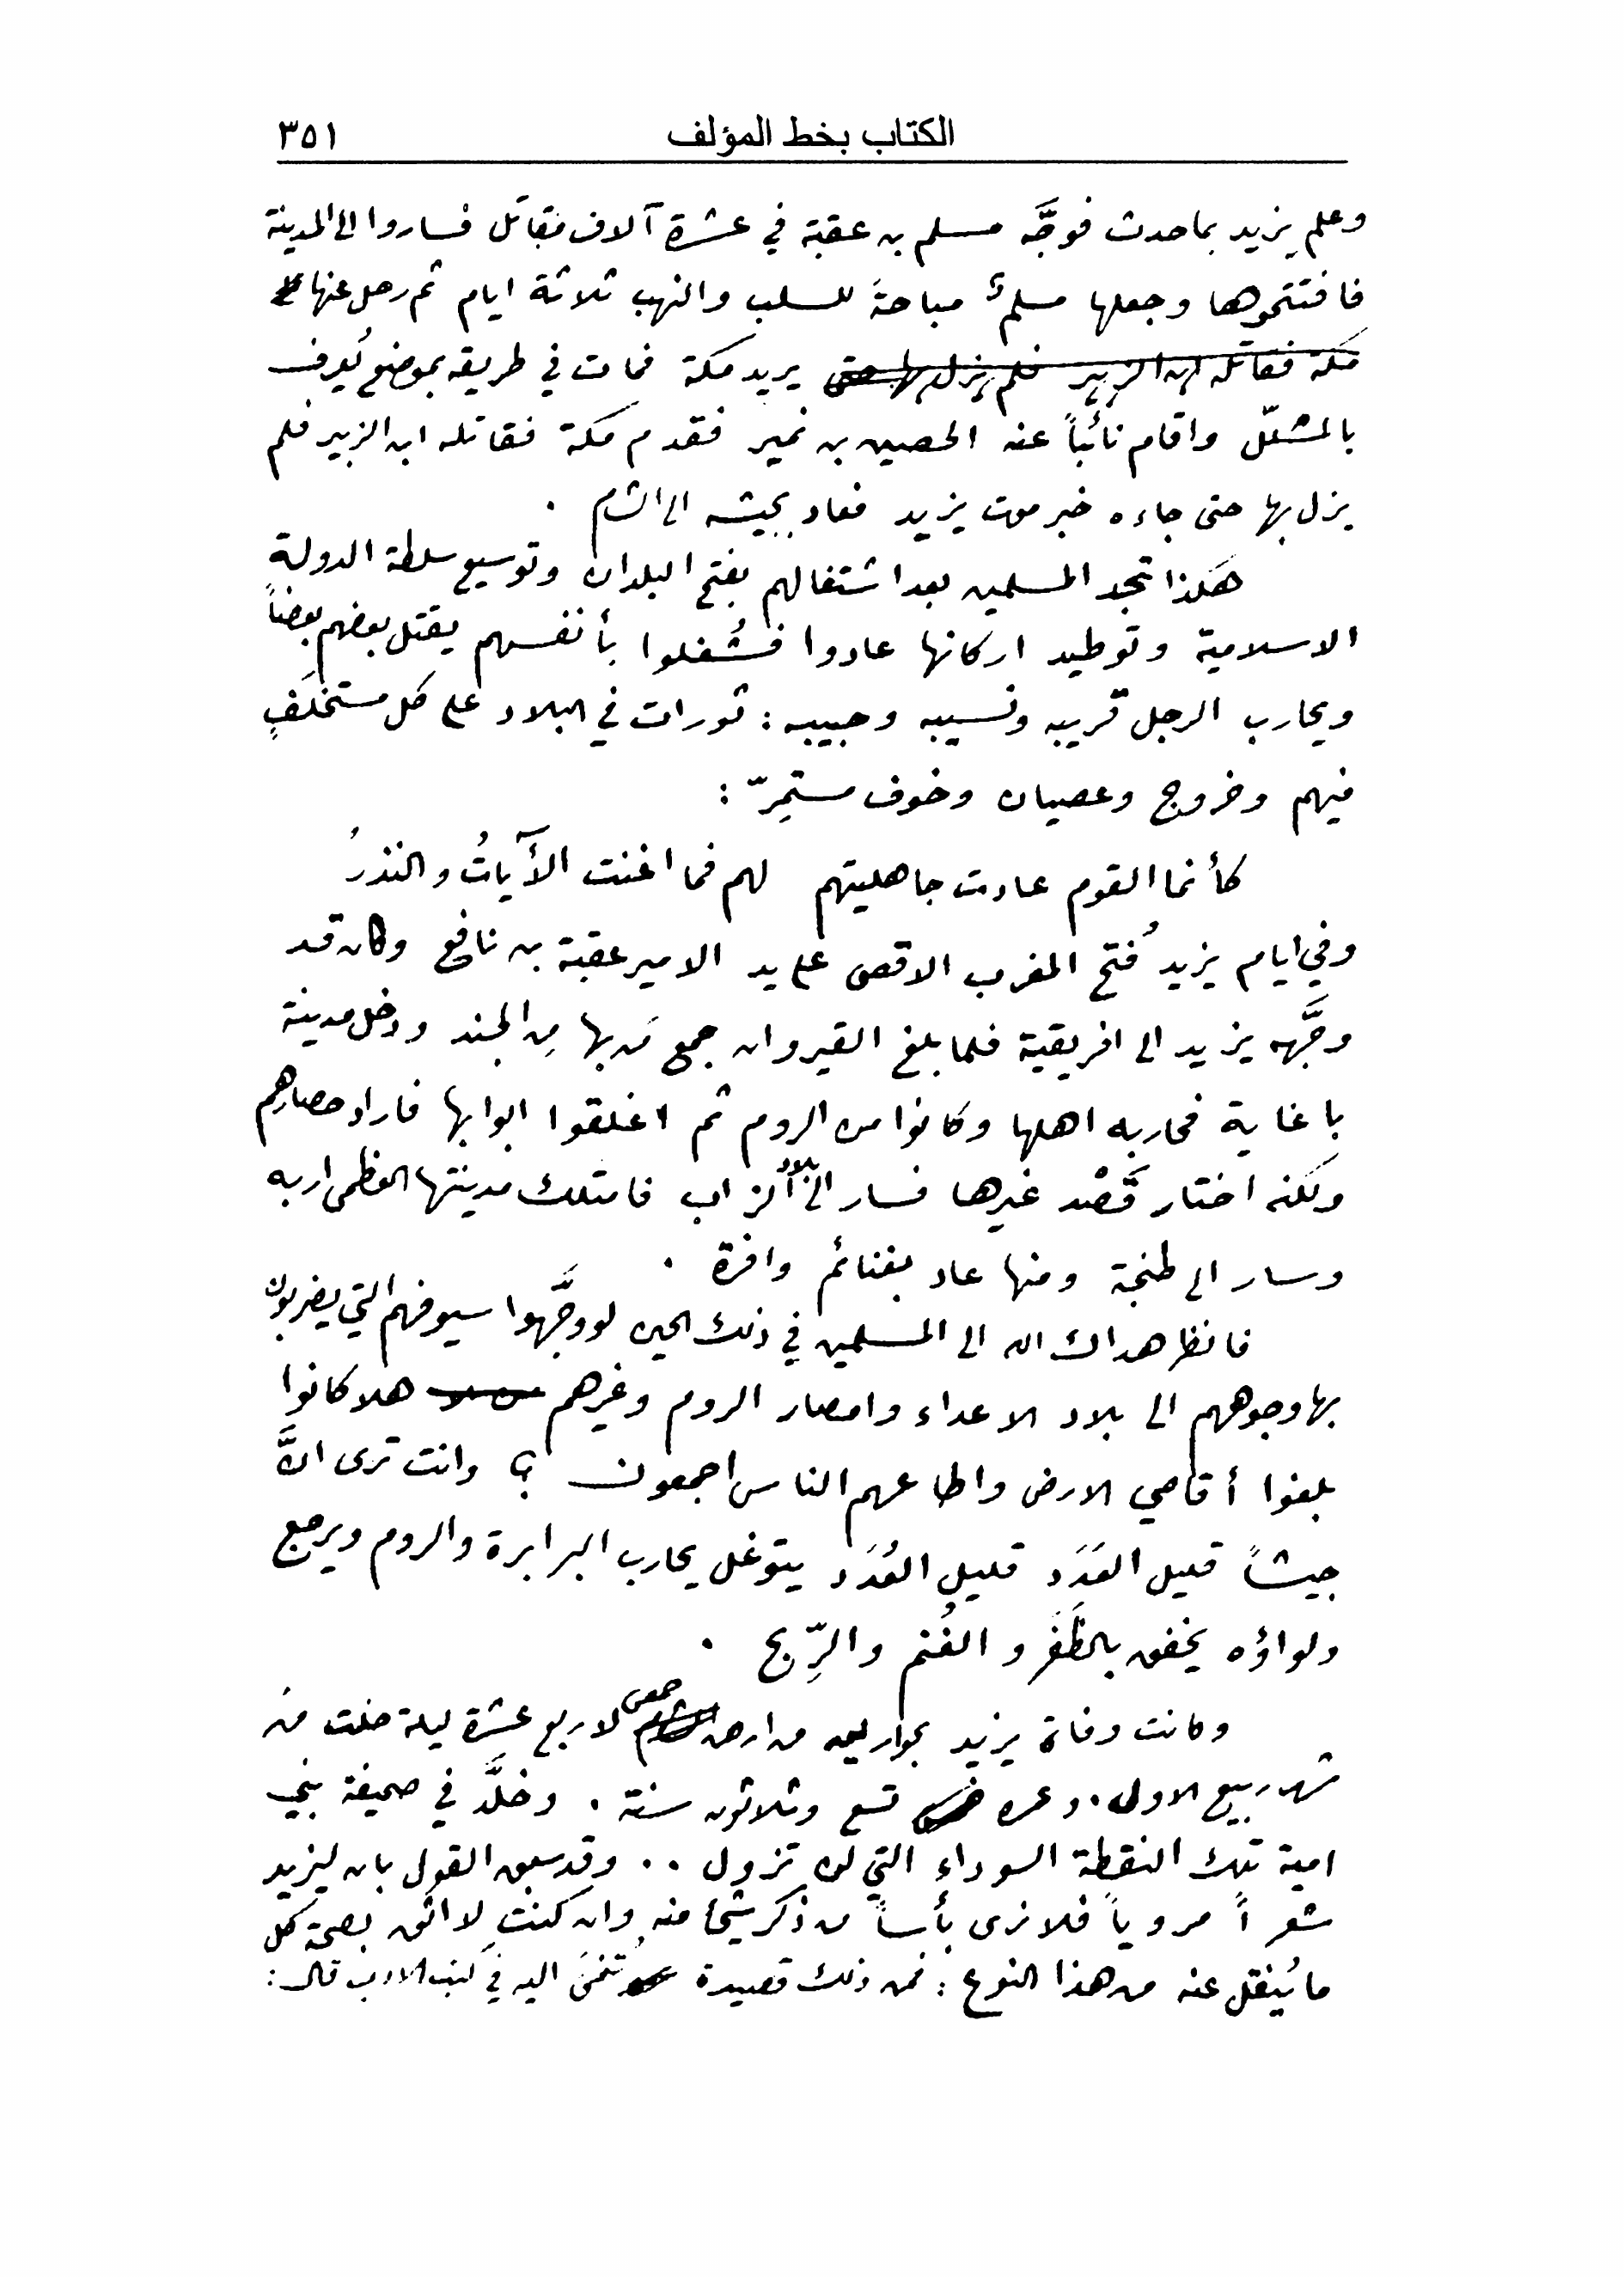 الكتاب بخط المؤلف ٣٥١
وعلم يزيد بما حدث فوجَّه مسلم بن عقبة في عشرة آلاف مقاتل فساروا الى المدينة
فافتتحوها وجعلها مسلمٌ مباحةً للسلب والنهب ثلاثة ايام ثم رحل عنها
مكة فقاتله ابن الزبير فلم يزل بها حتى يريد مكة فمات في طريقه بموضع يُعرف
بالمشلّل واقام نائباً عنه الحصين بن نمير فقدم مكة فقاتله ابن الزبير فلم
يزل بها حتى جاءه خبر موت يزيد فعاد بجيشه الى الشام .
هكذا تجد المسلمين بعد اشتغالهم بفتح البلدان وتوسيع سلطة الدولة
الاسلامية وتوطيد اركانها عادوا فشُغلوا بأنفسهم يقتل بعضهم بعضاً
ويحارب الرجل قريبه ونسيبه وحبيبه : ثورات في البلاد على كل مستخلَفٍ
فيهم وخروج وعصيان وخوف مستمِرّ :
كأنما القوم عادت جاهليتهم لهم فما اغنت الآياتُ والنذرُ
وفي ايام يزيد فُتح المغرب الاقصى على يد الامير عقبة بن نافع وكان قد
وجَّهه يزيد الى افريقية فلما بلغ القيروان جمع مَن بها مِن الجند ودخل مدينة
باغاية فحاربه اهلها وكانوا من الروم ثم اغلقوا ابوابها فاراد حصارهم
ولكنه اختار قَصْد غيرها فسار الى بلاد الزاب فامتلك مدينتها العظمى اربه
وسار الى طنجة ومنها عاد بغنائم وافرة .
فانظر هداك الله الى المسلمين في ذلك الحين لو وجَّهوا سيوفهم التي يضربون
بها وجوههم الى بلاد الاعداء وامصار الروم وغيرهم هلا كانوا
بلغوا أقاصي الارض واطاعهم الناس اجمعون ؟ وانت ترى انَّ
جيشاً قليل العَدَد قليل العُدَد يتوغل يحارب البرابرة والروم ويرجع
ولواؤه يخفق بالظَفَر والغُنم والرِّبح .
وكانت وفاة يزيد بجوارين من ارض حمص لاربع عشرة ليلة خلت من
شهر ربيع الاول . وعمره تسع وثلاثون سنة . وخلَّد في صحيفة بني
امية تلك النقطة السوداء التي لن تزول .. وقد سبق القول بان ليزيد
شعراً مروياً فلا نرى بأساً من ذكر شيئ منه وان كنت لا اثق بصحة كل
ما يُنقل عنه من هذا النوع : فمن ذلك قصيدة تُنمى اليه في كتب الادب قال :